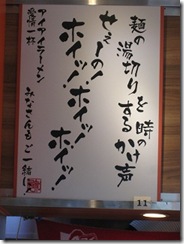 麺の湯切りを
する時の
かけ声
せぇーの！
ホイッ！ホイッ！
ホイッ！
アイアイラーメン
愛情一杯
みなさんもご一緒に！
11